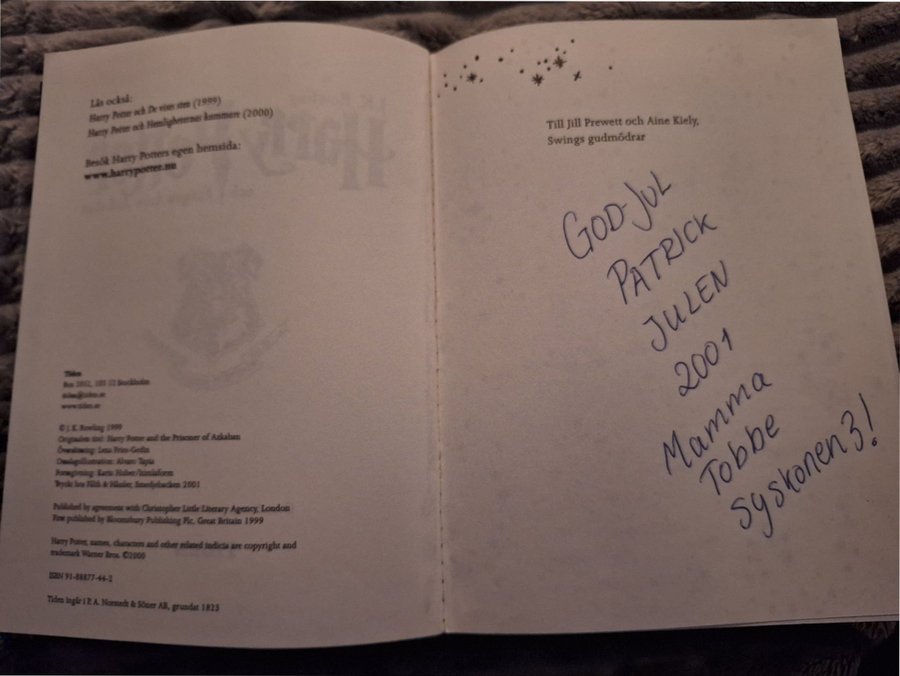 Läs också:
Harry Potter och De vises sten (1999)
Harry Potter och Hemligheternas kammare (2000)
Besök Harry Potters egen hemsida:
www.harrypotter.nu
Tiden
Box 2052, 103 12 Stockholm
tiden@tiden.se
www.tiden.se
© J. K. Rowling 1999
Originalets titel: Harry Potter and the Prisoner of Azkaban
Översättning: Lena Fries-Gedin
Omslagsillustration: Alvaro Tapia
Formgivning: Karin
Tryckt hos Fälth & Hässler, Smedjebacken 2001
Published by agreement with Christopher Little Literary Agency, London
First published by Bloomsbury Publishing Plc, Great Britain 1999
Harry Potter, names, characters and other related indicia are copyright and
trademark Warner Bros. ©2000
ISBN 91-88877-44-2
Tiden ingår i P. A. Norstedt & Söner AB, grundat 1823
Till Jill Prewett och Aine Kiely,
Swings gudmödrar
GOD-JUL
PATRICK
JULEN
2001
Mamma
Tobbe
Syskonen 3!